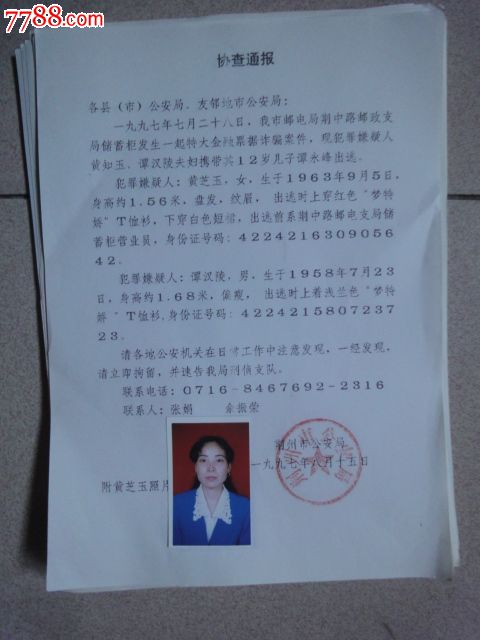 7788.com
中国收藏热线
协查通报
各县（市）公安局、友邻地市公安局：
一九九七年七月二十八日，我市邮电局荆中路邮政支
局储蓄柜发生一起特大金融票据诈骗案件，现犯罪嫌疑人
黄知玉、谭汉陵夫妇携带其12岁儿子谭永峰出逃。
犯罪嫌疑人：黄芝玉，女，生于1963年9月5日，
身高约1.56米，盘发，纹眉， 出逃时上穿红色“梦特
娇”T恤衫，下穿白色短裙，出逃前系荆中路邮电支局储
蓄柜营业员，身份证号码：4224216309056
42。
犯罪嫌疑人：谭汉陵，男，生于1958年7月23
日，身高约1.68米，偏瘦， 出逃时上着浅兰色“梦特
娇”T恤衫，身份证号码：4224215807237
23。
请各地公安机关在日常工作中注意发现，一经发现，
请立即拘留，并速告我局刑侦支队。
联系电话：0716-8467692-2316
联系人：张娟 余振荣
荆州市公安局
一九九七年八月十五日
附黄芝玉照片